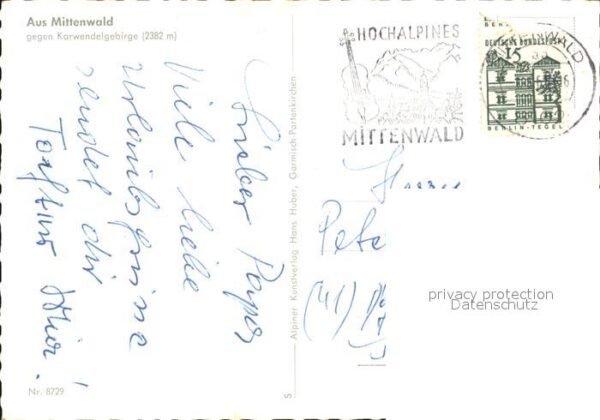 Aus Mittenwald
gegen Karwendelgebirge (2382 m)
Lieber Papa,
Viele liebe
Urlaubsgrüsse
sendet dir
Nr. 8729
Alpiner Kunstverlag Hans Huber, Garmisch-Partenkirchen
S
HOCHALPINES
MITTENWALD
DEUTSCHE BUNDESPOST
15
BERLIN-TEGEL
Pete
privacy protection
Datenschutz